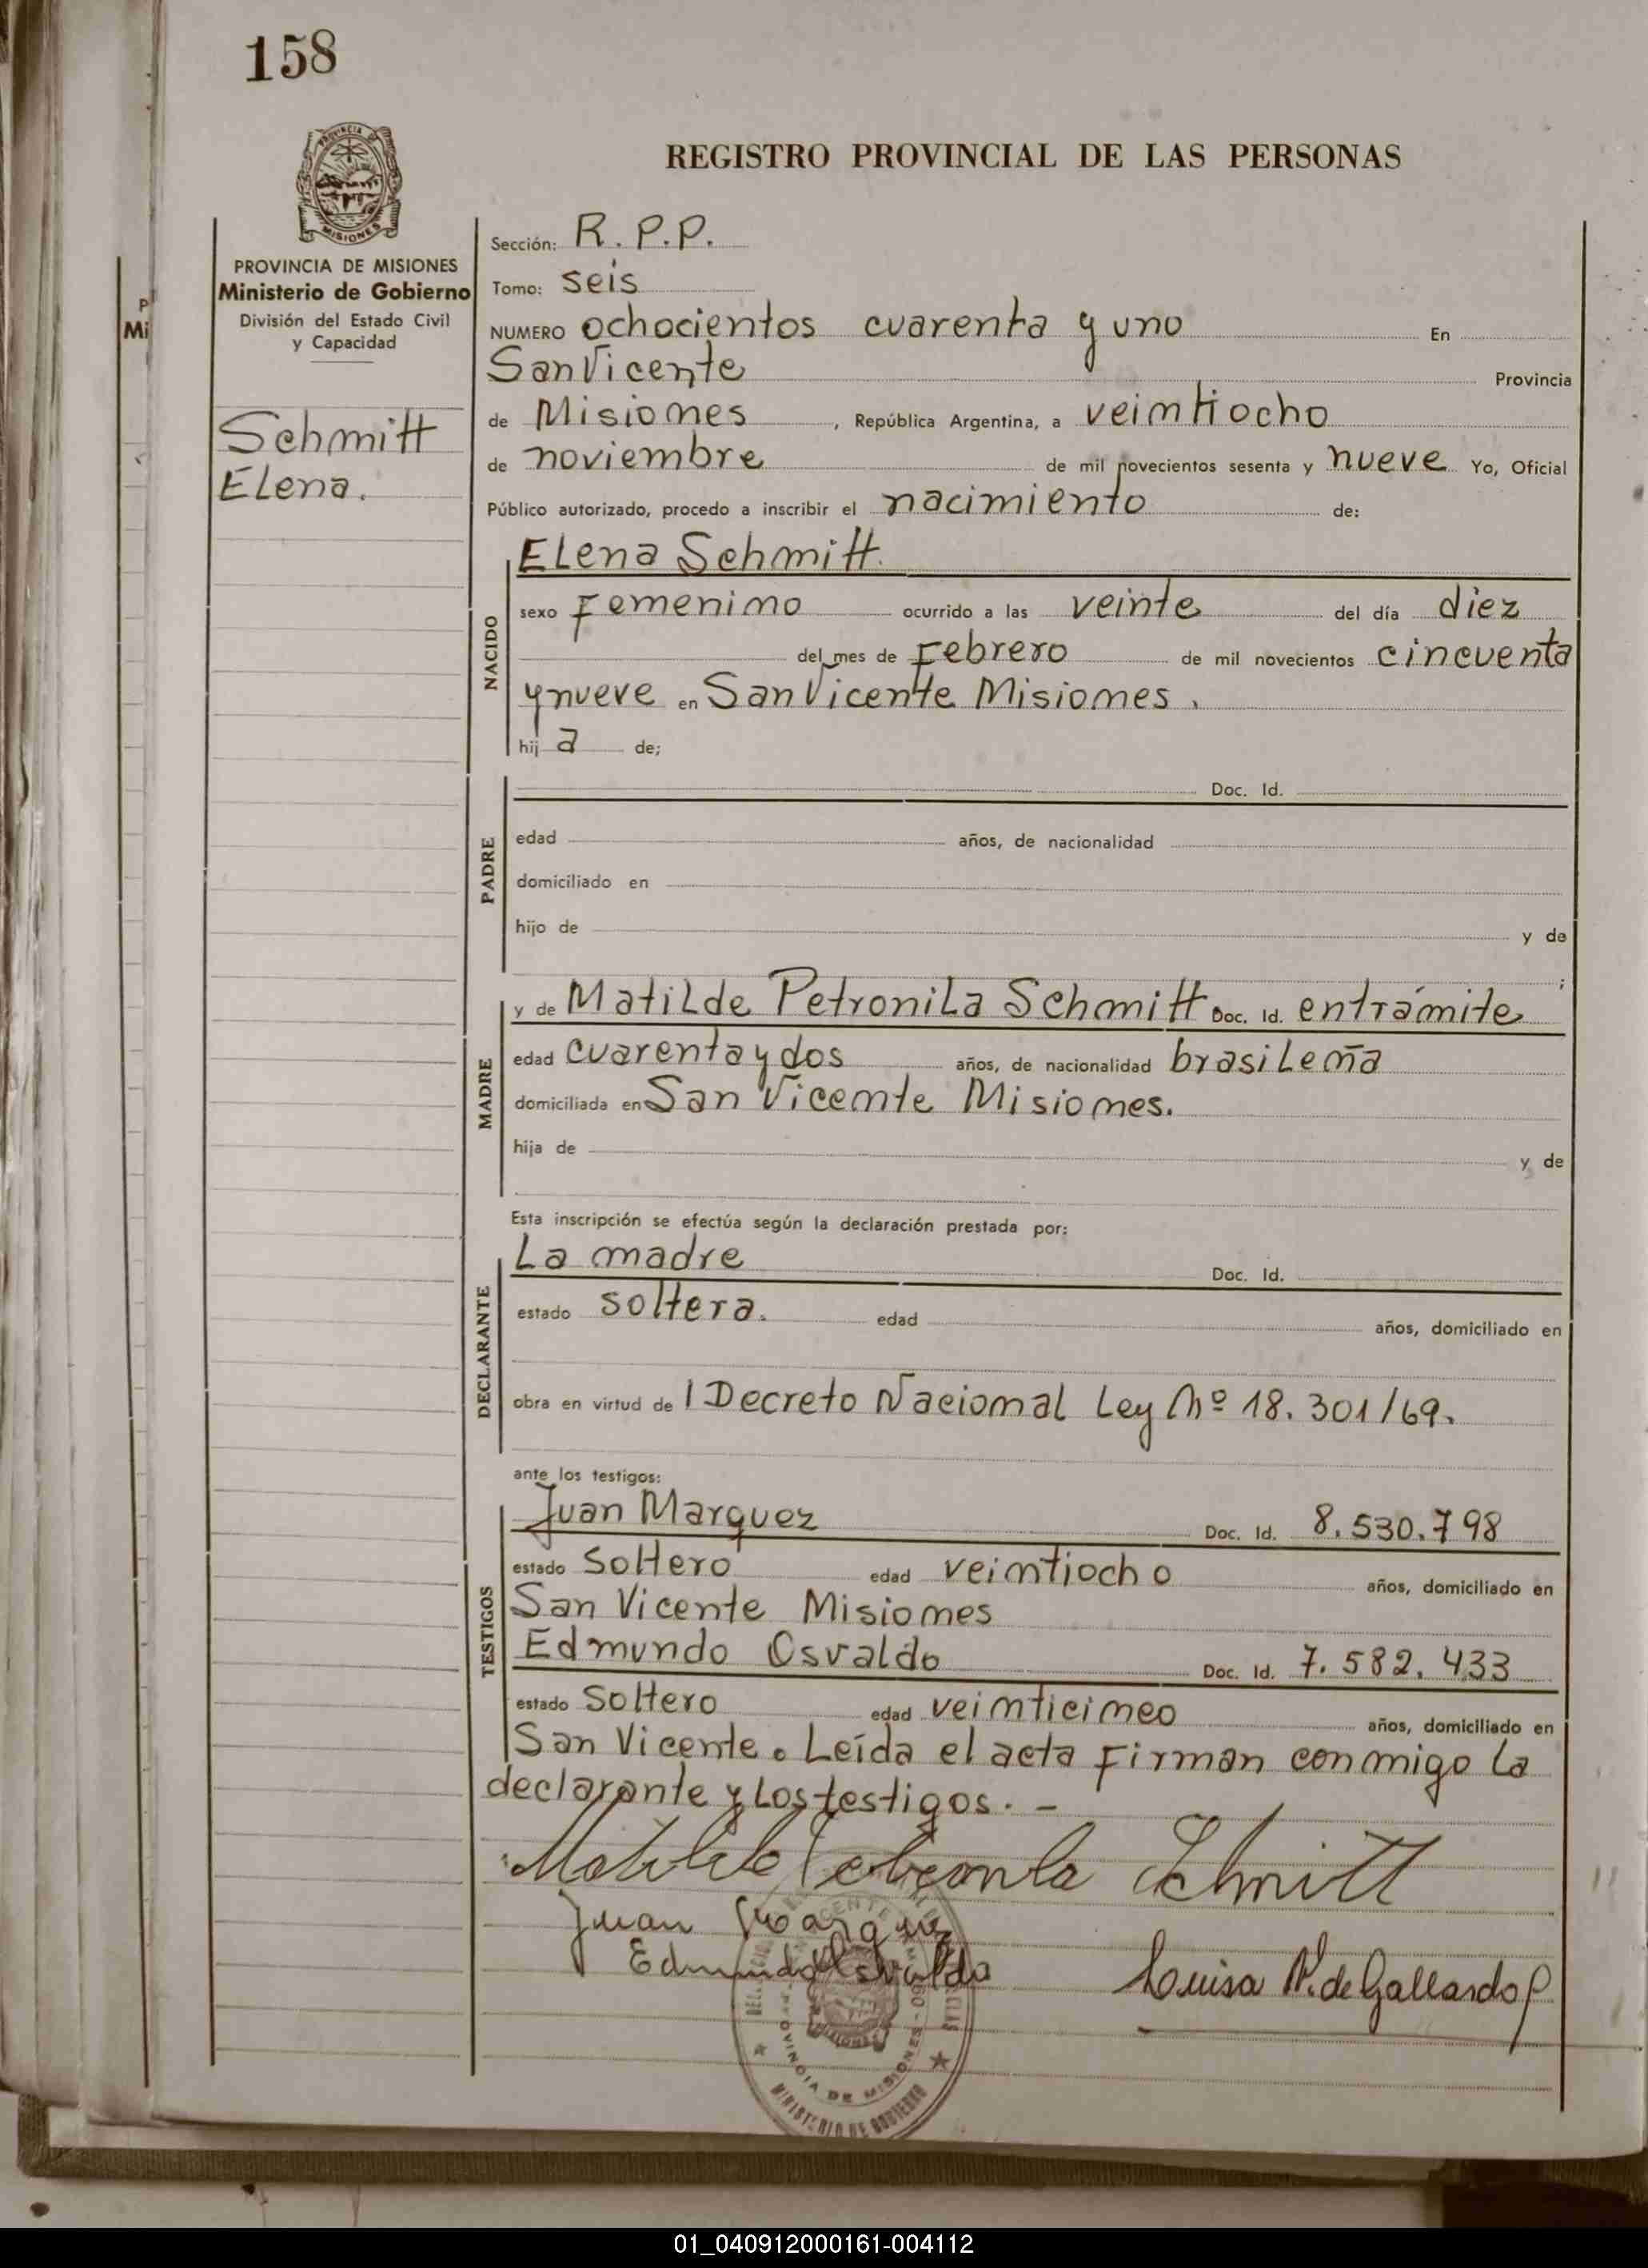 158
PROVINCIA
MISIONES
REGISTRO PROVINCIAL DE LAS PERSONAS
PROVINCIA DE MISIONES
Ministerio de Gobierno
División del Estado Civil
y Capacidad
Schmitt
Elena.
P
Mi
Sección: R.P.P.
Tomo: seis
NUMERO ochocientos cuarenta y uno En
San Vicente Provincia
de Misiones, República Argentina, a veintiocho
de noviembre de mil novecientos sesenta y nueve Yo, Oficial
Público autorizado, procedo a inscribir el nacimiento de:
NACIDO
Elena Schmitt.
sexo Femenino ocurrido a las veinte del día diez
del mes de Febrero de mil novecientos cincuenta
y nueve en San Vicente Misiones.
hij a de;
PADRE
Doc. Id.
edad años, de nacionalidad
domiciliado en
hijo de y de
;
MADRE
y de Matilde Petronila Schmitt Doc. Id. entrámite
edad cuarenta y dos años, de nacionalidad brasileña
domiciliada en San Vicente Misiones.
hija de y de
Esta inscripción se efectúa según la declaración prestada por:
DECLARANTE
La madre Doc. Id.
estado soltera. edad años, domiciliado en
obra en virtud de l Decreto Nacional Ley Nº 18.301/69.
ante los testigos:
TESTIGOS
Juan Marquez Doc. Id. 8.530.798
estado soltero edad veintiocho años, domiciliado en
San Vicente Misiones
Edmundo Osvaldo Doc. Id. 7.582.433
estado soltero edad veinticinco años, domiciliado en
San Vicente. Leída el acta firman conmigo la
declarante y los testigos. -
Schmitt
Juan Marquez
Edmundo Osvaldo
Luisa de Gallardo
PROVINCIA DE MISIONES
MINISTERIO DE GOBIERNO
01_040912000161-004112